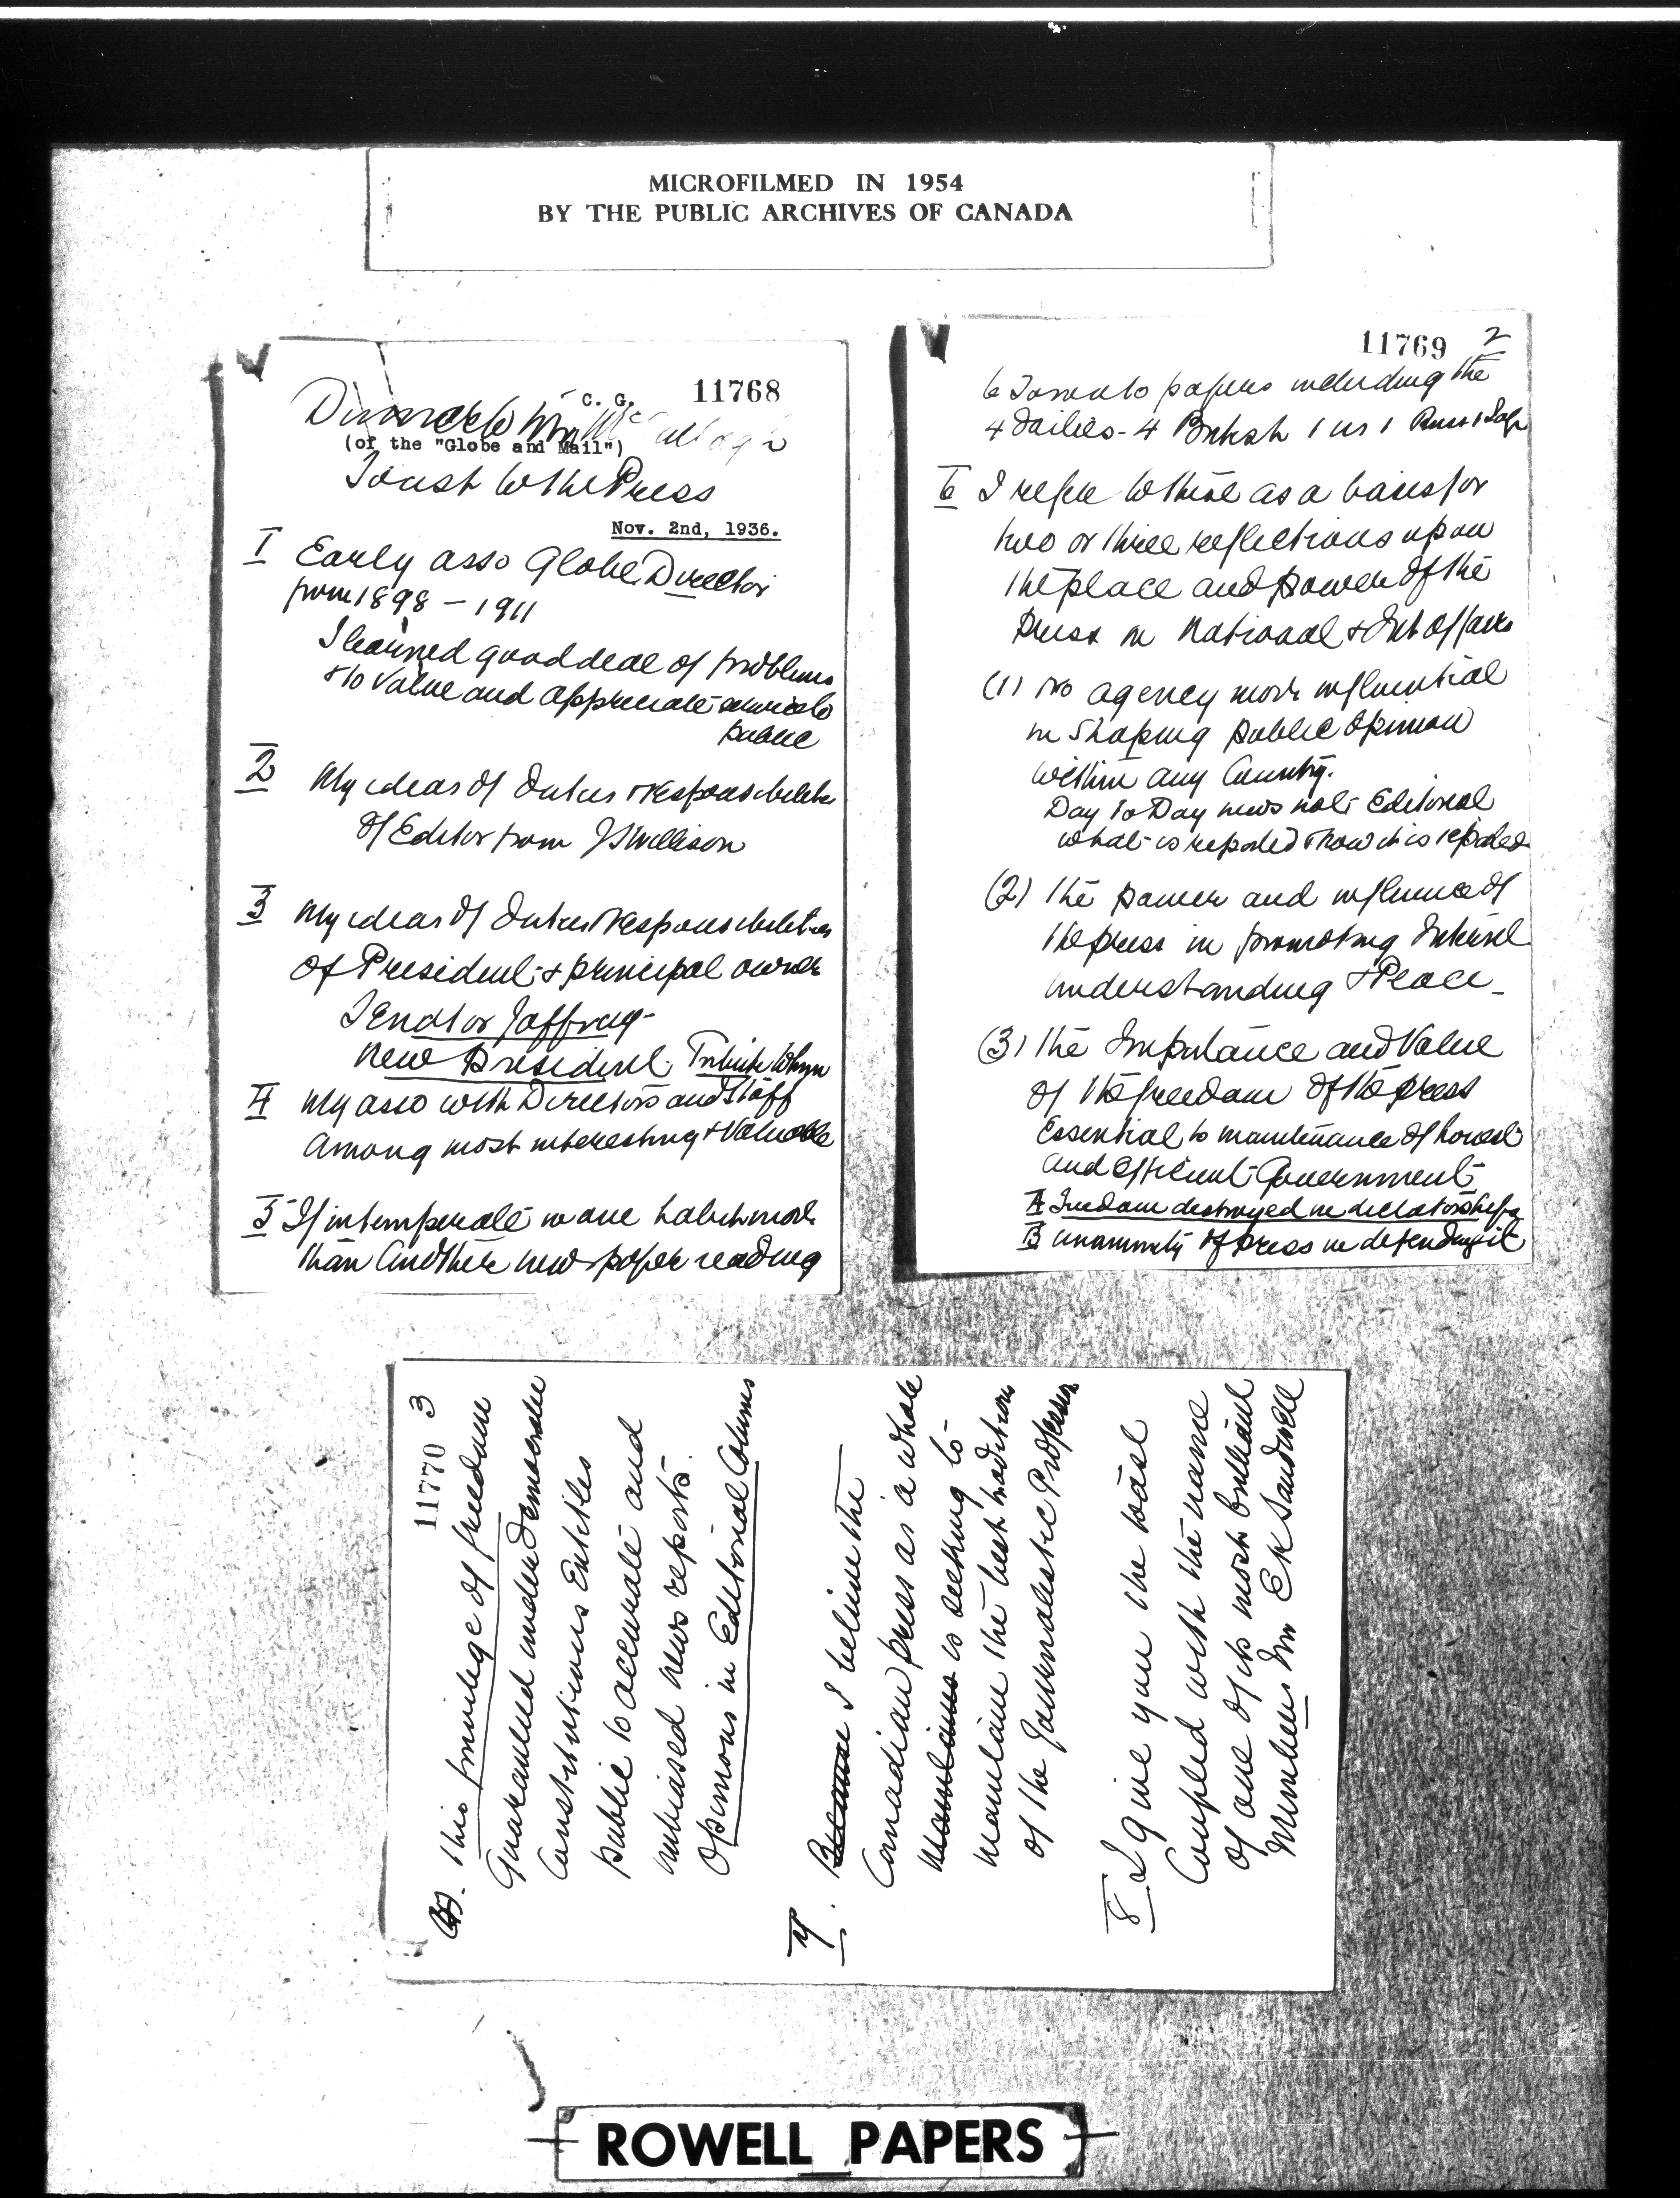 MICROFILMED IN 1954
BY THE PUBLIC ARCHIVES OF CANADA
11768
C. G.
Dinner to Mr Mc
(of the "Globe and Mail")
Toast to the Press
Nov. 2nd, 1936.
I Early asso Globe Director
from 1898 - 1911
I learned good deal of problems
& to value and appreciate service to
public
2 My ideas of duties & responsibilities
of Editor from JS Willison
3 My ideas of duties & responsibilities
of President & principal owner
Senator Jaffray
New President Tribute to him
4 My asso with Directors and Staff
among most interesting & valuable
5 If intemperate in one habit more
than another newspaper reading
11769 2
6 Toronto papers including the
4 dailies - 4 British 1 US 1
6 I refer to these as a basis for
two or three reflections upon
the place and power of the
Press in National & Int affairs
(1) No agency more influential
in shaping public opinion
within any Country.
Day to Day news not Editorial
what is reported & how it is reported
(2) The power and influence of
the press in promoting Internl
understanding & Peace -
(3) The Importance and Value
of the freedom of the press
Essential to maintenance of honest
and efficient Government
A Freedom destroyed in dictatorships
B unanimity of press in defending it
11770 3
This privilege of freedom
Guaranteed under Democratic
Constitutions Entitles
public to accurate and
unbiased news reports.
Opinions in Editorial Columns
7. Because I believe the
Canadian press as a whole
maintains is seeking to
maintain the best traditions
of the Journalistic Profession
8 I give you the toast
Coupled with the name
of one of its most brilliant
Members Mr EK Sandwell
ROWELL PAPERS